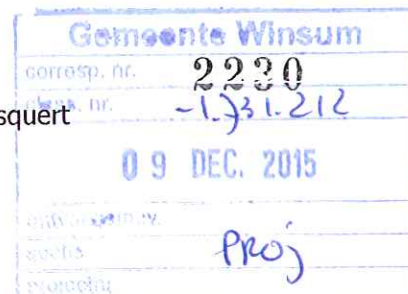 Gemeente Winsum
corresp. nr. 2230
squert
nr. -1.731.212
09 DEC. 2015
Proj